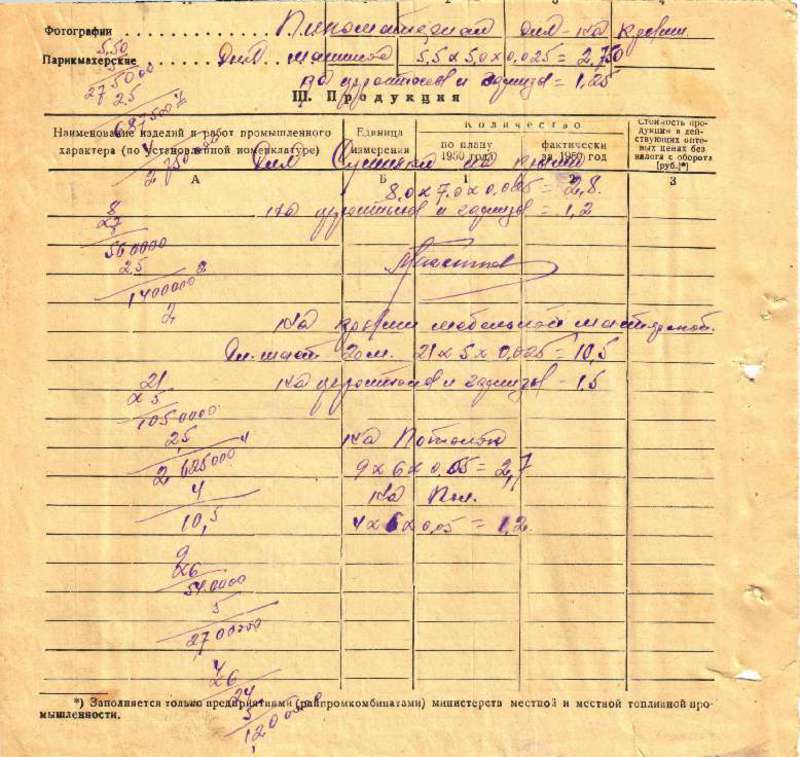 Фотографии
Пиломатериал для на кровли
5,50
Парикмахерские
Для машины 5,5 x 5,0 x 0,025 = 2,750
5,0
275000
25
на фронтонов и = 1,25
III. Продукция
687500
4
2750000
Наименование изделий и работ промышленного характера (по установленной номенклатуре)
Единица измерения
Количество
по плану 1950 года
фактически за 1950 год
Стоимость продукции в действующих оптовых ценах без налога с оборота [руб.]*)
Для Сушилки на
А Б 1 2 3
8,0 x 7,0 x 0,025 = 2,8.
8
x 7
на фронтонов и = 1,2
560000
25
1400000
2
на кровли мебельной мастерской.
20 м. 21 x 5 x 0,025 = 10,5
21
x 5
на фронтонов и = 1,5
1050000
25
на Потолок
2625000
9 x 6 x 0,05 = 2,7
4
на Пол.
10,5
4 x 6 x 0,05 = 1,2.
9
x 6
540000
5
2700000
4
x 6
24
5
120000
*) Заполняется только предприятиями (райпромкомбинатами) министерств местной и местной топливной про-
мышленности.